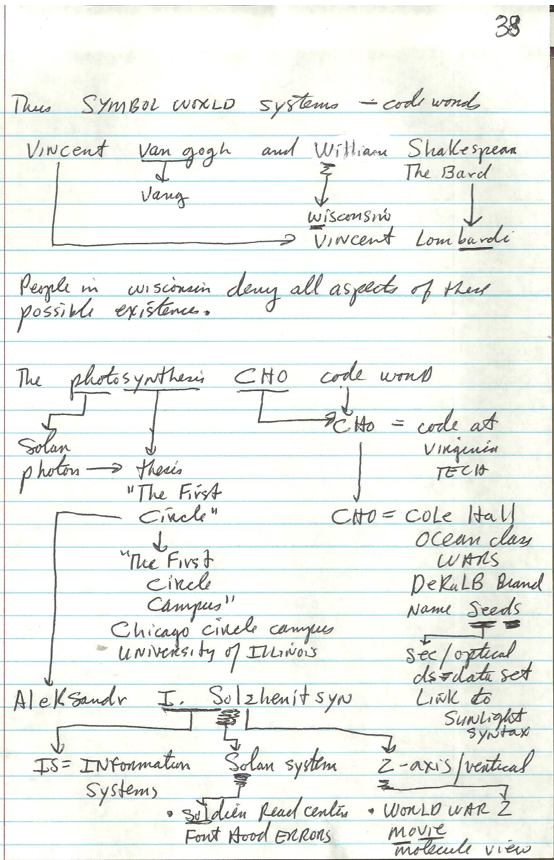 38
Thus SYMBOL WORLD systems — code words
Vincent Van gogh and William Shakespear
The Bard
Vang
Wisconsin
Vincent Lombardi
People in wisconsin deny all aspects of their
possible existence.
The photosynthesis CHO code word
CHO = code at
Virginia
TECH
Solar
photon → thesis
"The First
Circle"
"The First
Circle
Campus"
Chicago circle campus
UNIVERSITY OF ILLINOIS
CHO = Cole Hall
Ocean class
WARS
DeKALB Brand
Name Seeds
Sec/optical
ds=data set
Link to
Sunlight
syntax
Aleksandr I. Solzhenitsyn
IS = INFORMATION
Systems
Solar system
Z-axis/vertical
• Soldier Read center
Font Hood ERRORS
• WORLD WAR Z
movie
molecule view